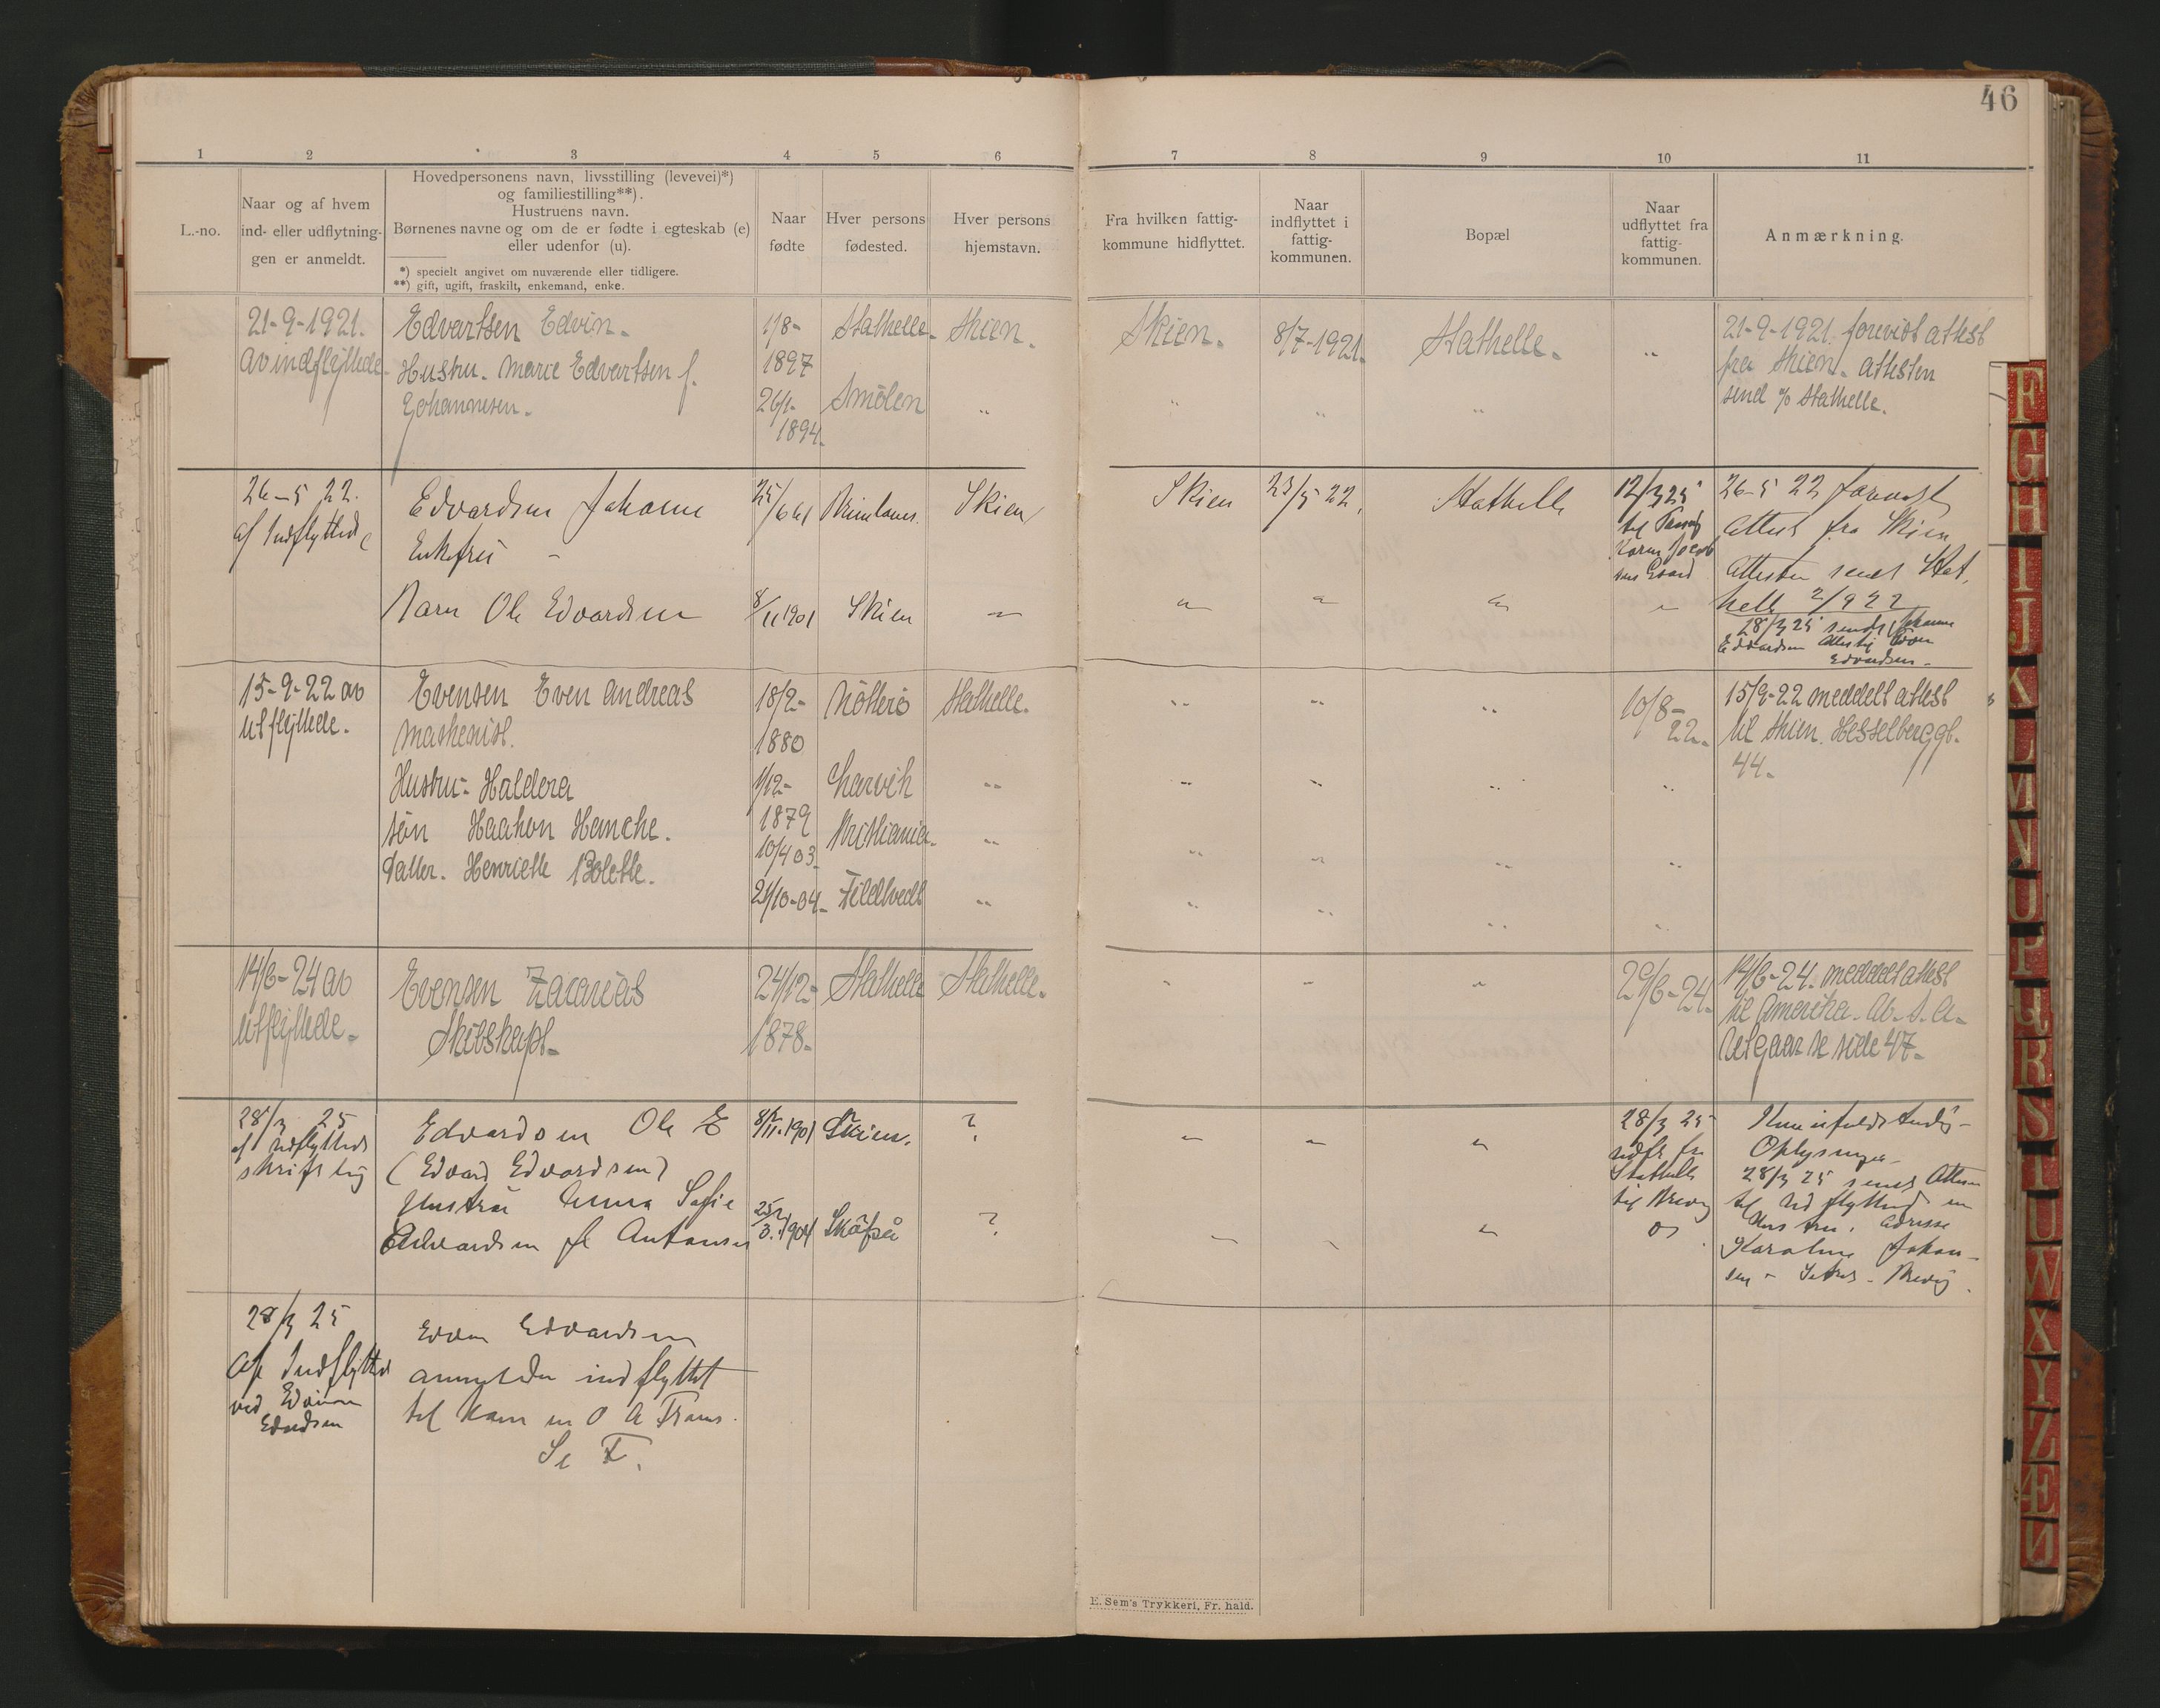 46
1 2 3 4 5 6 7 8 9 10 11
L.-no.
Naar og af hvem
ind- eller udflytnin-
gen er anmeldt.
Hovedpersonens navn, livsstilling (levevei)*)
og familiestilling**).
Hustruens navn.
Børnenes navne og om de er fødte i egteskab (e)
eller udenfor (u).
*) specielt angivet om nuværende eller tidligere.
**) gift, ugift, fraskilt, enkemand, enke.
Naar
fødte
Hver persons
fødested.
Hver persons
hjemstavn.
Fra hvilken fattig-
kommune hidflyttet.
Naar
indflyttet i
fattig-
kommunen.
Bopæl
Naar
udflyttet fra
fattig-
kommunen.
Anmærkning.
21-9-1921.
av indflyttede.
Edvartsen Edvin.
Hustru. Marie Edvartsen f.
Johannesen.
1/8-
1897
26/1-
1894.
Stathelle.
Smölen
Skien.
"
Skien.
"
8/7-1921.
"
Stathelle.
"
"
21-9-1921. forevist attest
fra Skien. attesten
send o/ Stathelle.
26-5 22.
af Indflyttede
Edvardsen Johanne
Enkefru -
Barn Ole Edvardsen
25/6 61
8/11 1901
Skien
Skien
"
Skien
"
23/5 22.
"
Stathelle
"
12/3 25
til
"
26-5 22 forevist
Attest fra Skien
Attesten sendt Stat,
helle 2/9 22
28/3 25 sendt Johanne
Edvardsen Attest
Edvardsen -
15-9-22 av
utflyttede.
Evensen Even Andreas
Maskenist.
Hustru- Haldera
Sön Haakon Hanche.
Datter. Henriette Bolette.
18/2-
1880
1/12-
1879
10/4 03.
21/10-04.
Nötterö
Larvik
Kristiania.
Fildtvedt
Stathelle.
"
"
"
" " "
" " " "
" " " "
" " " "
10/8-
22.
15/9-22 meddelt attest
til Skien. Hesselberggt.
44.
14/6-24 av
utflyttede.
Evensen Zacarias
Skibskapt.
24/12-
1878.
Stathelle
Stathelle.
" " "
29/6-24.
14/6-24. meddelt attest
til Amerika. Av. S. A.
Utgaar se side 47.
28/3 25
af Indflyttede
skriftlig
Edvardsen Ole E
(Edvard Edvardsen)
Hustru Anna Sofie
Edvardsen f. Antonsen
8/11. 1901
25/3. 1904
Skien.
Skåfså
?
?
" " "
" " "
28/3 25
udfl. fra
Stathelle
til Brevig
Kun ufuldstendig
Oplysninger
28/3 25 sendt Attest
til Udflyttede m
Hustru. Adresse
Karoline Johan-
sen - - Brevig.
28/3 25
Af Indflyttede
ved
Edvardsen
Edvardsen
anmelder indflyttet
til ham m O A Frans.
Se F.
E. Sem's Trykkeri, Fr. hald.
F
G
H
I
J
K
L
M
N
O
P
Q
R
S
T
U
W
X
Y
Z
Æ
Ø